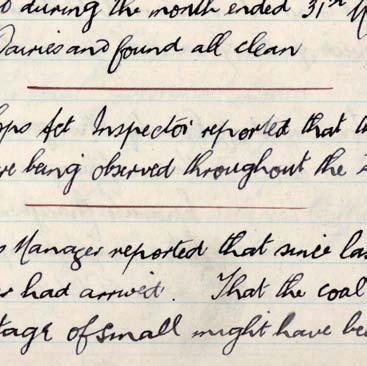 during the month ended 31st
Dairies and found all clean
Act Inspector reported that
being observed throughout the
Manager reported that since
had arrived. That the coal
of small might have